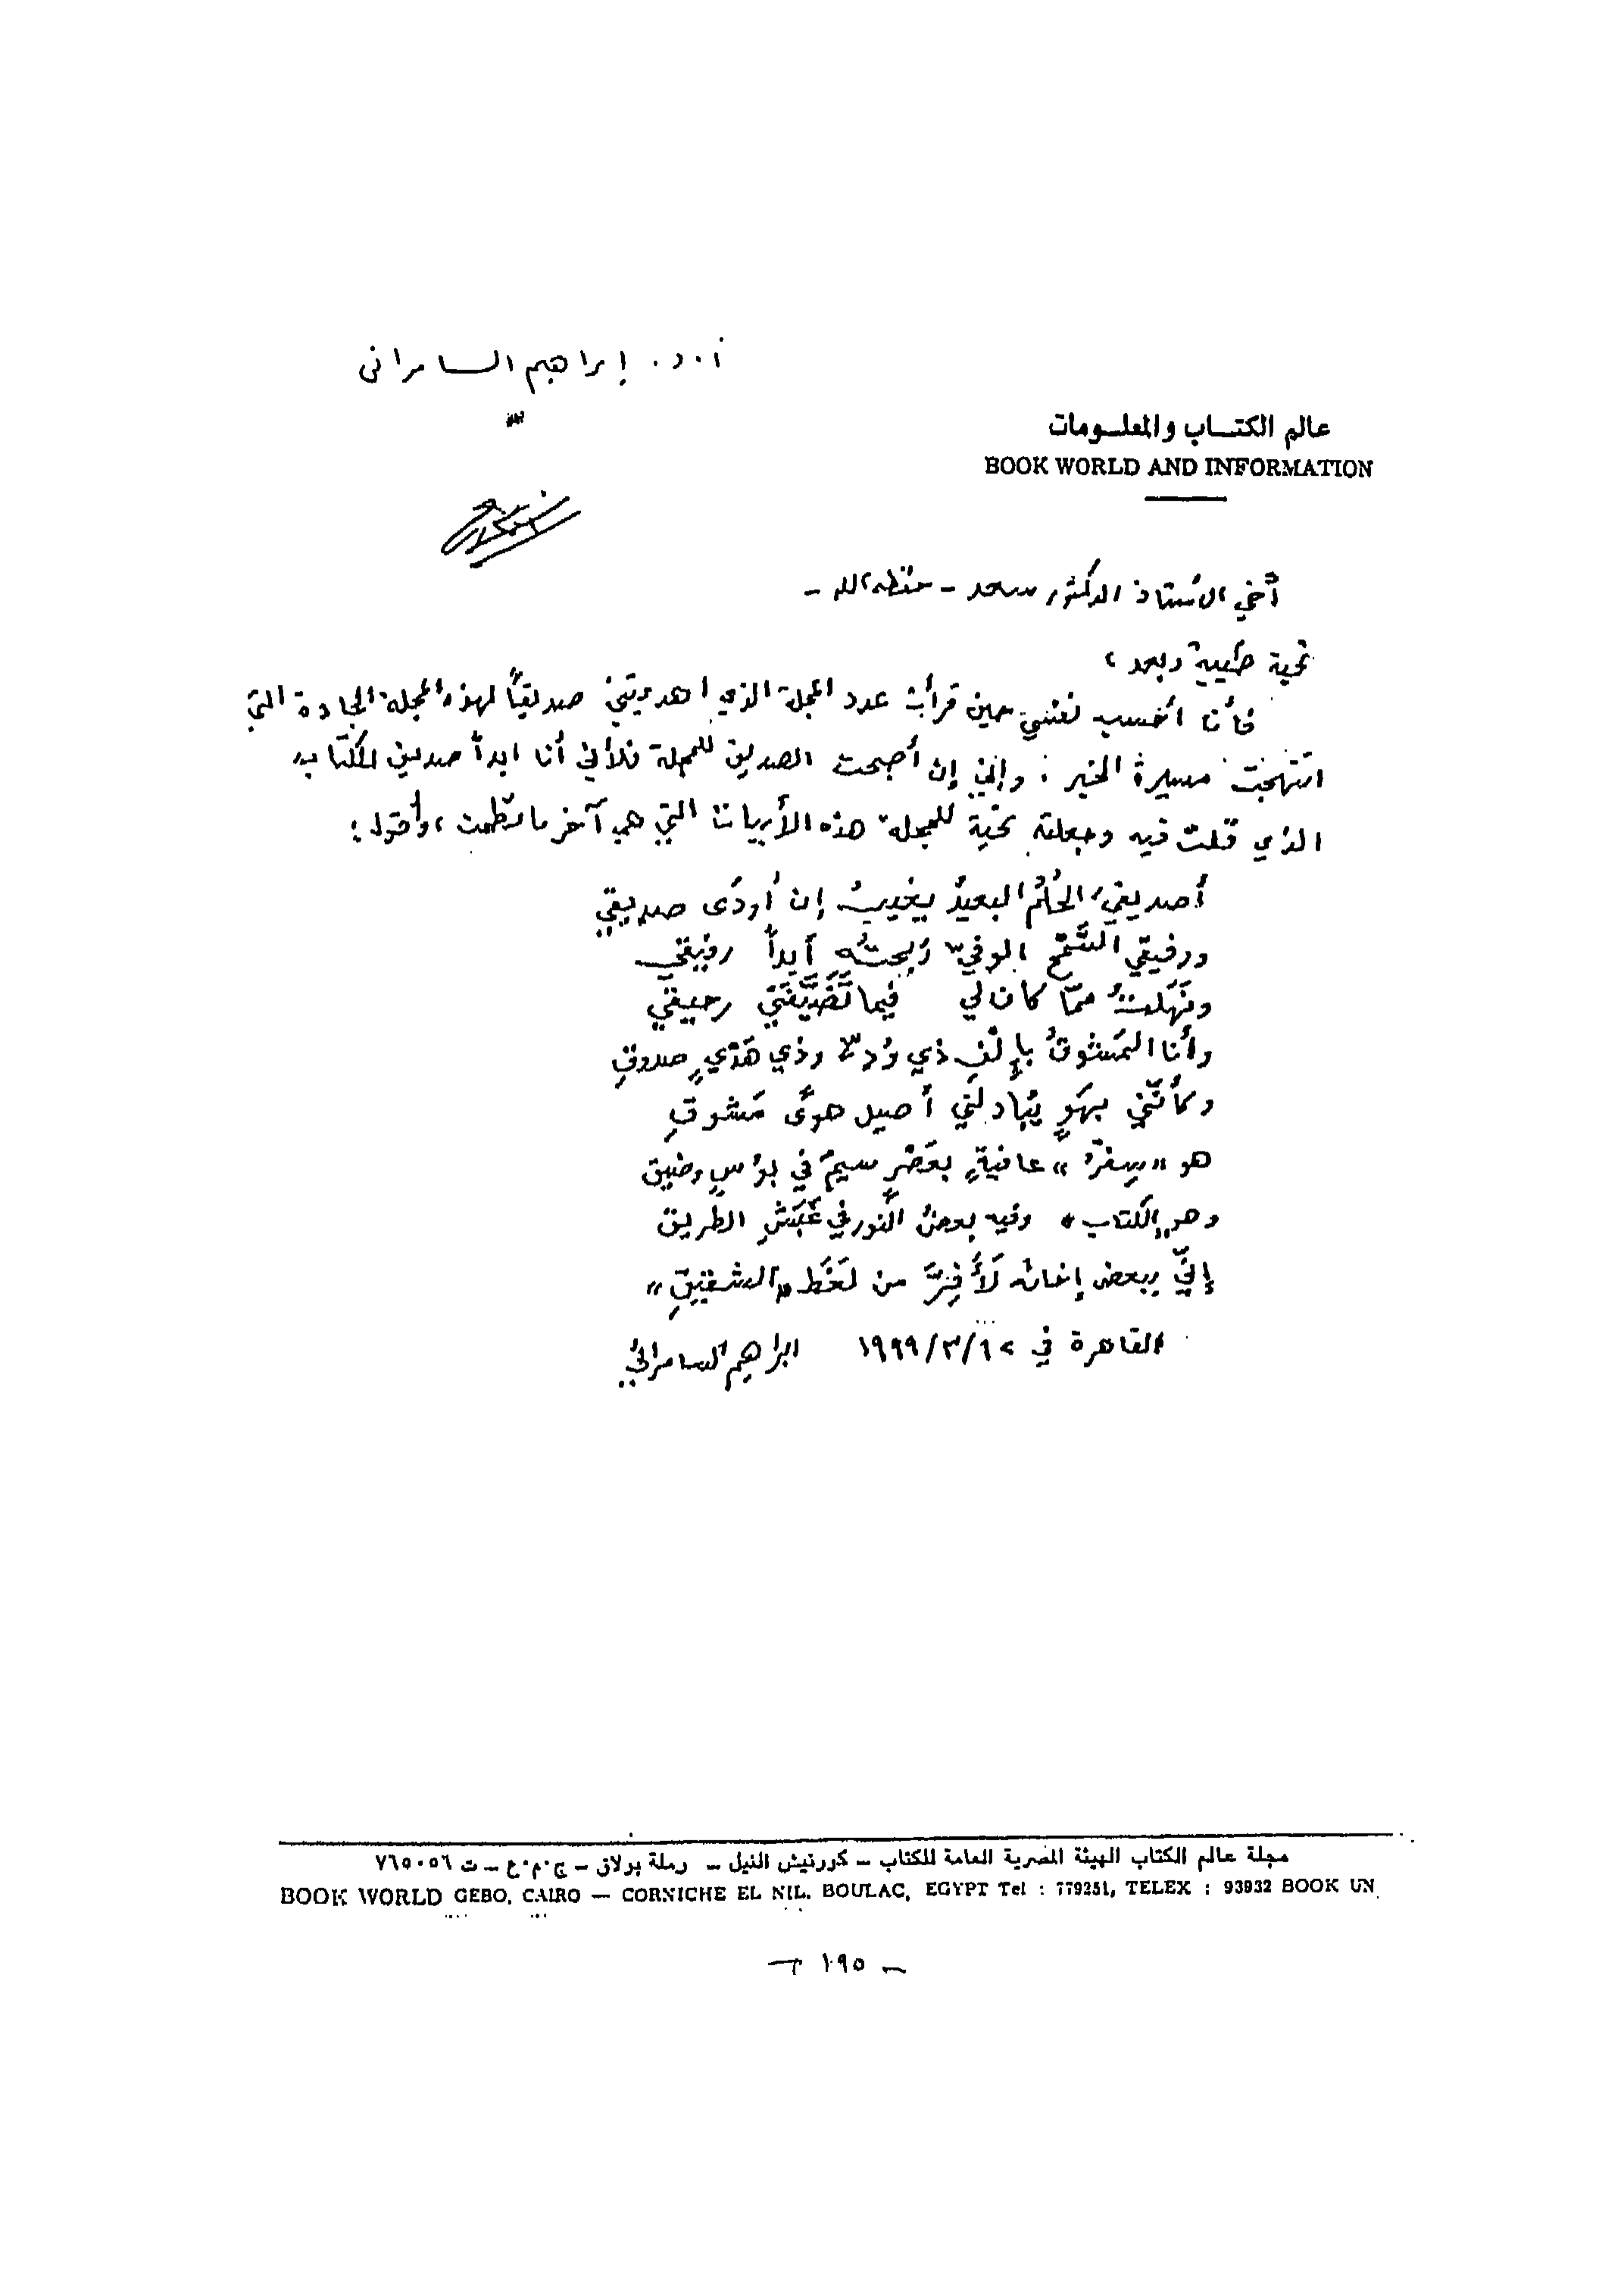 أ.د. إبراهيم السامرائى
عالم الكتـــاب والمعلـــومات
BOOK WORLD AND INFORMATION
أخي الأستاذ الدكتور سعد - حفظه الله -
تحية طيبة وبعد ،
فأنا أحسب نفسي حين قرأت عدد المجلة الذي أهديتني صديقاً لهذه المجلة الجادة التي
انتهجت مسيرة الخير . وإني إن أصبحت الصديق للمجلة فلأني أنا ابداً صديق الكتاب
الذي قلت فيه وجعلته تحية للمجلة هذه الأبيات التي هي آخر ما نظمت ، وأقول :
أصديقيَ الحُلُمُ البعيدُ يخيبُ إن أودَى صديقي
ورفيقي السَّمْحُ الوفيّ رَبِحتُه أبداً رفيقي
ونَهَلتُ ممّا كان لي فيما تَضَيَّفَني رحيقي
وأنا المَشُوقُ بإلْفِ ذي وُدٍّ وذي هَدْيٍ صدوقِ
وكأنّني بهَوٍ يُبادلني أصيل هوًى مَشوقِ
هو «سِفرُ» عافيةٍ بعَصْرٍ سيمَ في بؤسٍ وضيق
وهو «الكتاب» وفيه بعضُ النُّور في غَبَشِ الطريق
إنّي ببعض إخائه لَأَفِرُّ من لَغَط «الشقيقِ»
القاهرة في ١٩٩٩/٣/١٢ ابراهيم السامرائي
مجلة عالم الكتاب الهيئة المصرية العامة للكتاب – كورنيش النيل – رملة بولاق – ج.م.ع – ت ٧٦٥٠٥٦
BOOK WORLD GEBO, CAIRO — CORNICHE EL NIL, BOULAC, EGYPT Tel : 779251, TELEX : 93932 BOOK UN
– ١٩٥ –